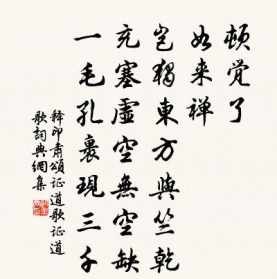 顿觉了
如来禅
岂独东方与竺乾
充塞虚空無空缺
一毛孔裏现三千
释印肃颂证道歌证道
歌词典網集